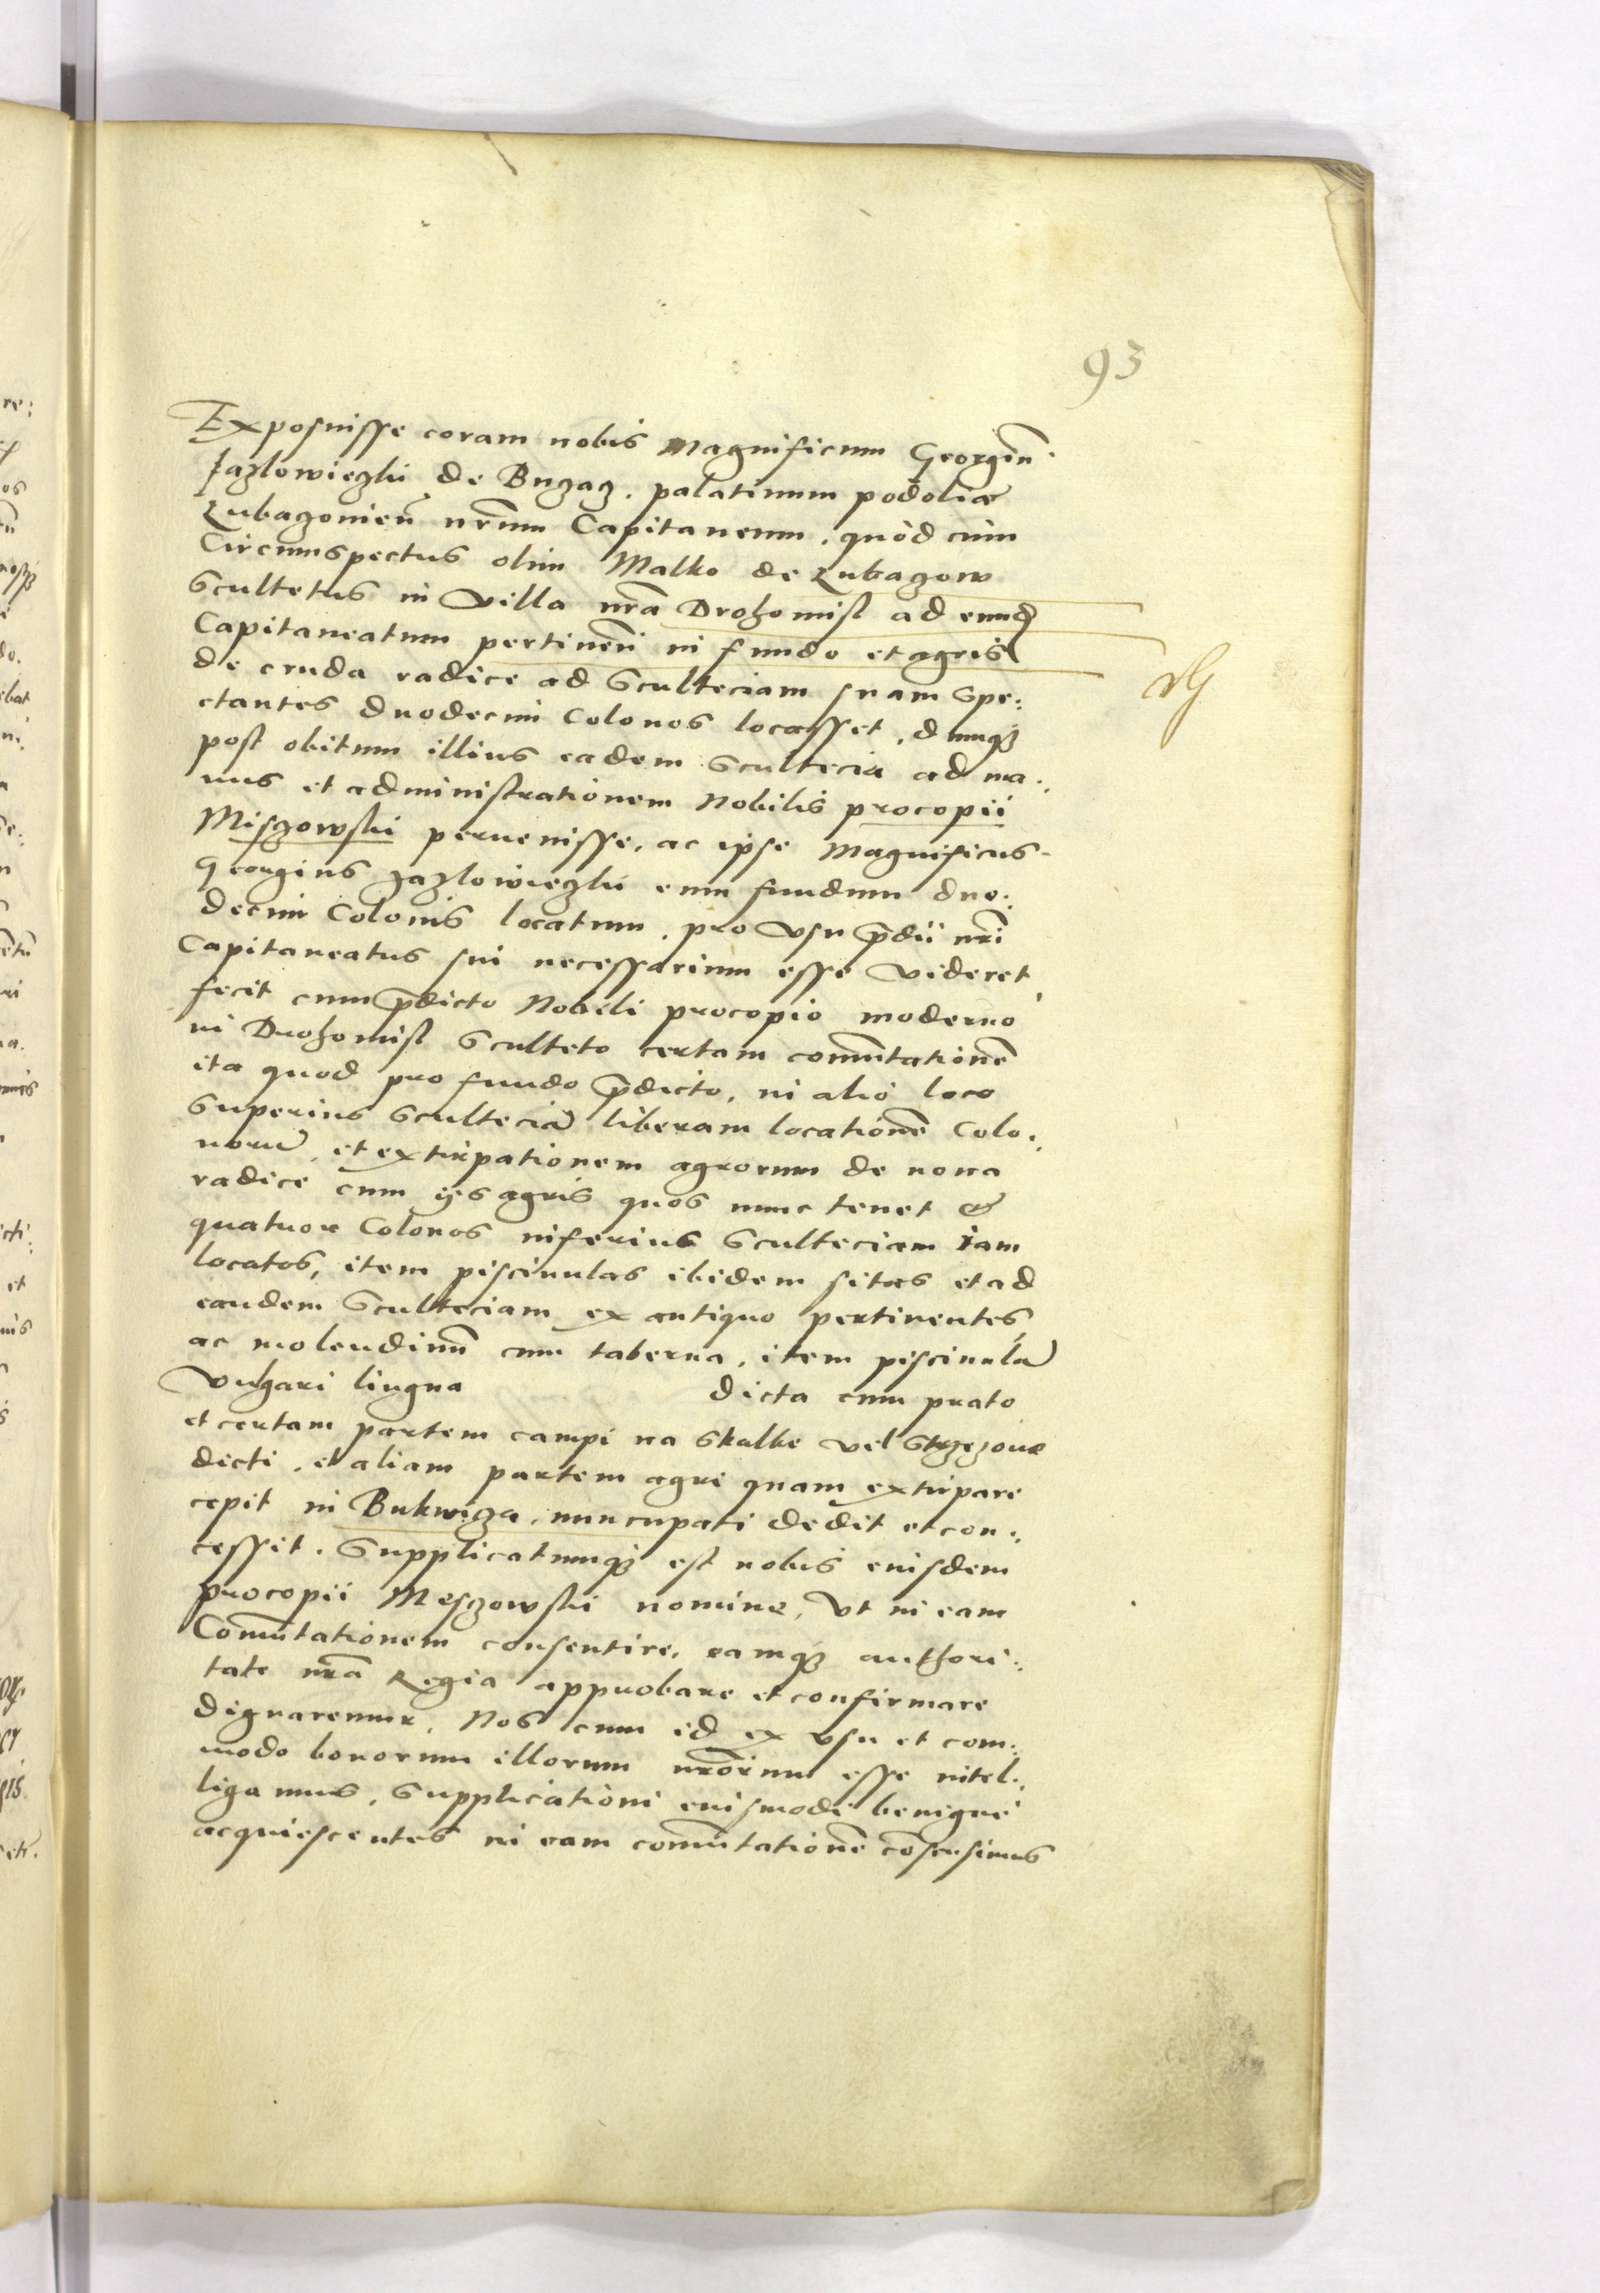 93
Exposuisse coram nobis Magnificum Georgiũ
Jazlowieczki de Buczacz, palatinum podoliæ
Lubaczovieñ nr̃um Capitaneum, quod cum
Circumspectus olim Malko de Lubaczow
Scultetus in Villa nr̃a Drohomisl ad eund
Capitaneatum pertineñ in fundo et agris
de cruda radice ad Sculteciam suam Spe:
ctantes duodecim Colonos locasset, dumq3
post obitum illius eadem Scultecia ad ma:
nus et administrationem Nobilis procopii
Misczowski peruenisse, ac ipse Magnificus
Georgius Jazlowieczki eum fundum duo:
decim Colonis locatum, pro vsu p̃dii nr̃i
Capitaneatus sui necessarium esse videret
fecit cum p̃dicto Nobili procopio moderno
in Drohomisl Sculteto certam com̃utationẽ
ita quod pro fundo p̃dicto, in alio loco
Superius Sculteciã liberam locationẽ Colo:
norũ, et extirpationem agrorum de noua
radice cum ijs agris quos nunc tenet et
quatuor Colonos inferius Scultetiam iam
locatos, item piscinulas ibidem sitas et ad
eandem Scultetiam ex antiquo pertinentes
ac molendinũ cum taberna, item piscinulã
Vulgari lingua dicta cum prato
et certam partem campi na Skalke vel
dicti, et aliam partem agri quam extirpare
cepit in Bukwiza, nuncupati dedit et con:
cessit. Supplicatumq3 est nobis eiusdem
procopii Mesczowski nomine, Vt in eam
Com̃utationem consentire, eamq3 authori:
tate nr̃a Regia approbare et confirmare
dignaremur. Nos cum id ex vsu et com:
modo bonorum illorum nr̃orum esse intel:
ligamus, Supplicationi eiusmodi benigne
acquiescentes in eam com̃utationẽ cõsensimus